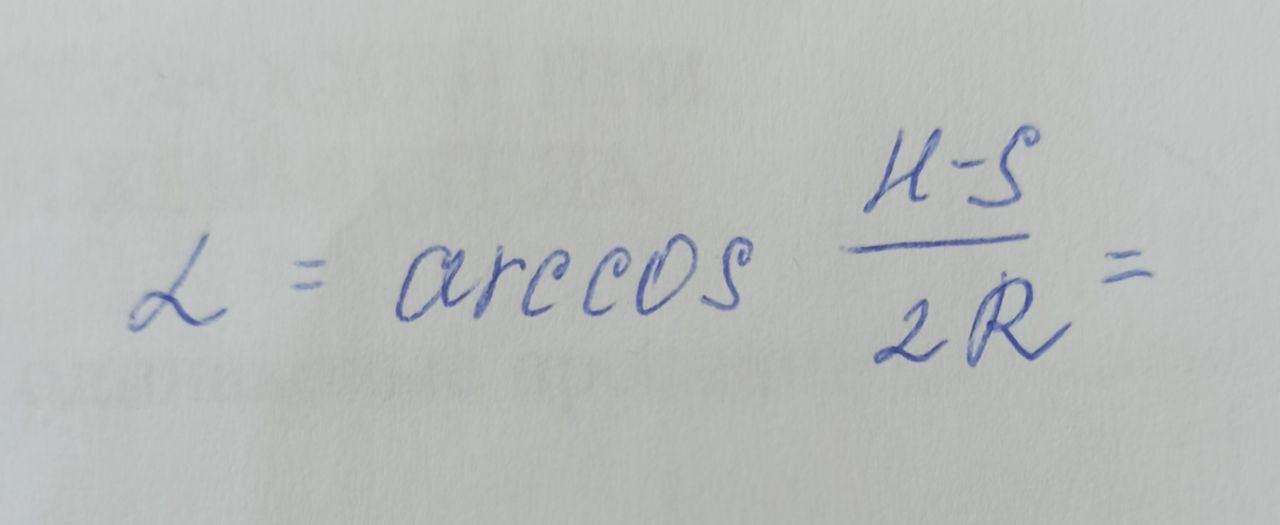 L = arccos (H-S)/(2R) =